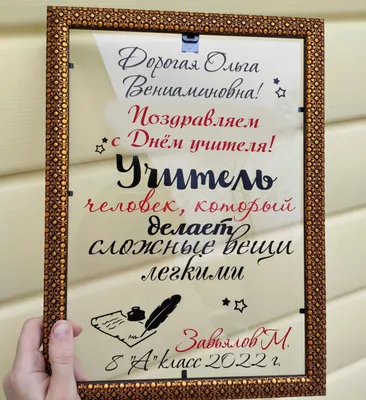 Дорогая Ольга
Вениаминовна!
Поздравляем
с Днём учителя!
Учитель
человек, который
делает
сложные вещи
легкими
Завьялов М.
8 "А" класс 2022 г.